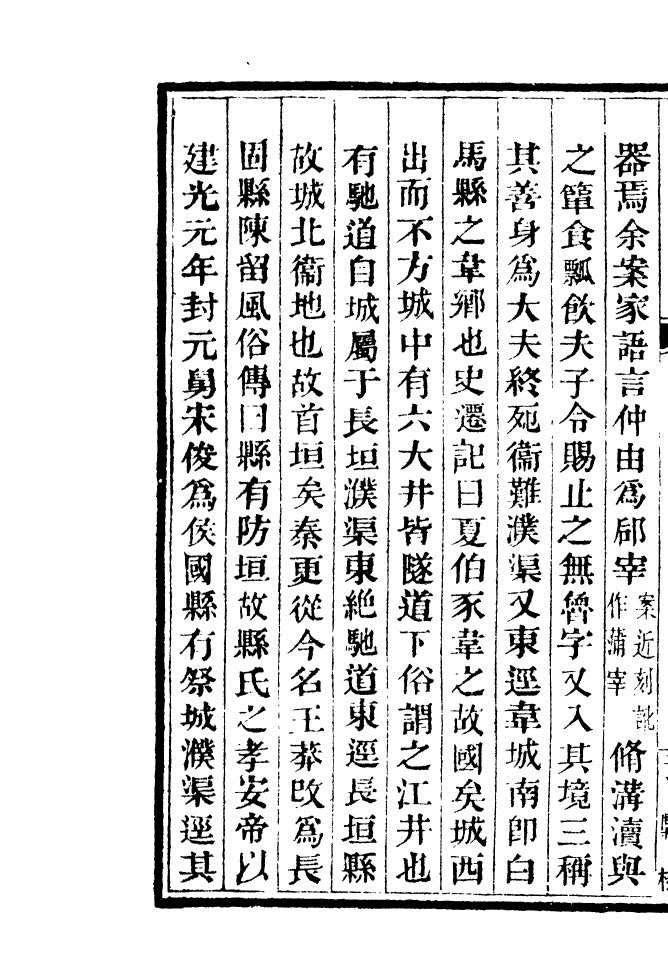 器焉余案家語言仲由爲郈宰案近刻訛作蒲宰脩溝瀆與
之簞食瓢飲夫子令賜止之無魯字又入其境三稱
其善身爲大夫終死衞難濮渠又東逕韋城南即白
馬縣之韋鄉也史遷記曰夏伯豕韋之故國矣城西
出而不方城中有六大井皆隧道下俗謂之江井也
有馳道自城屬于長垣濮渠東絶馳道東逕長垣縣
故城北衞地也故首垣矣秦更從今名王莽改爲長
固縣陳留風俗傳曰縣有防垣故縣氏之孝安帝以
建光元年封元舅宋俊爲侯國縣有祭城濮渠逕其